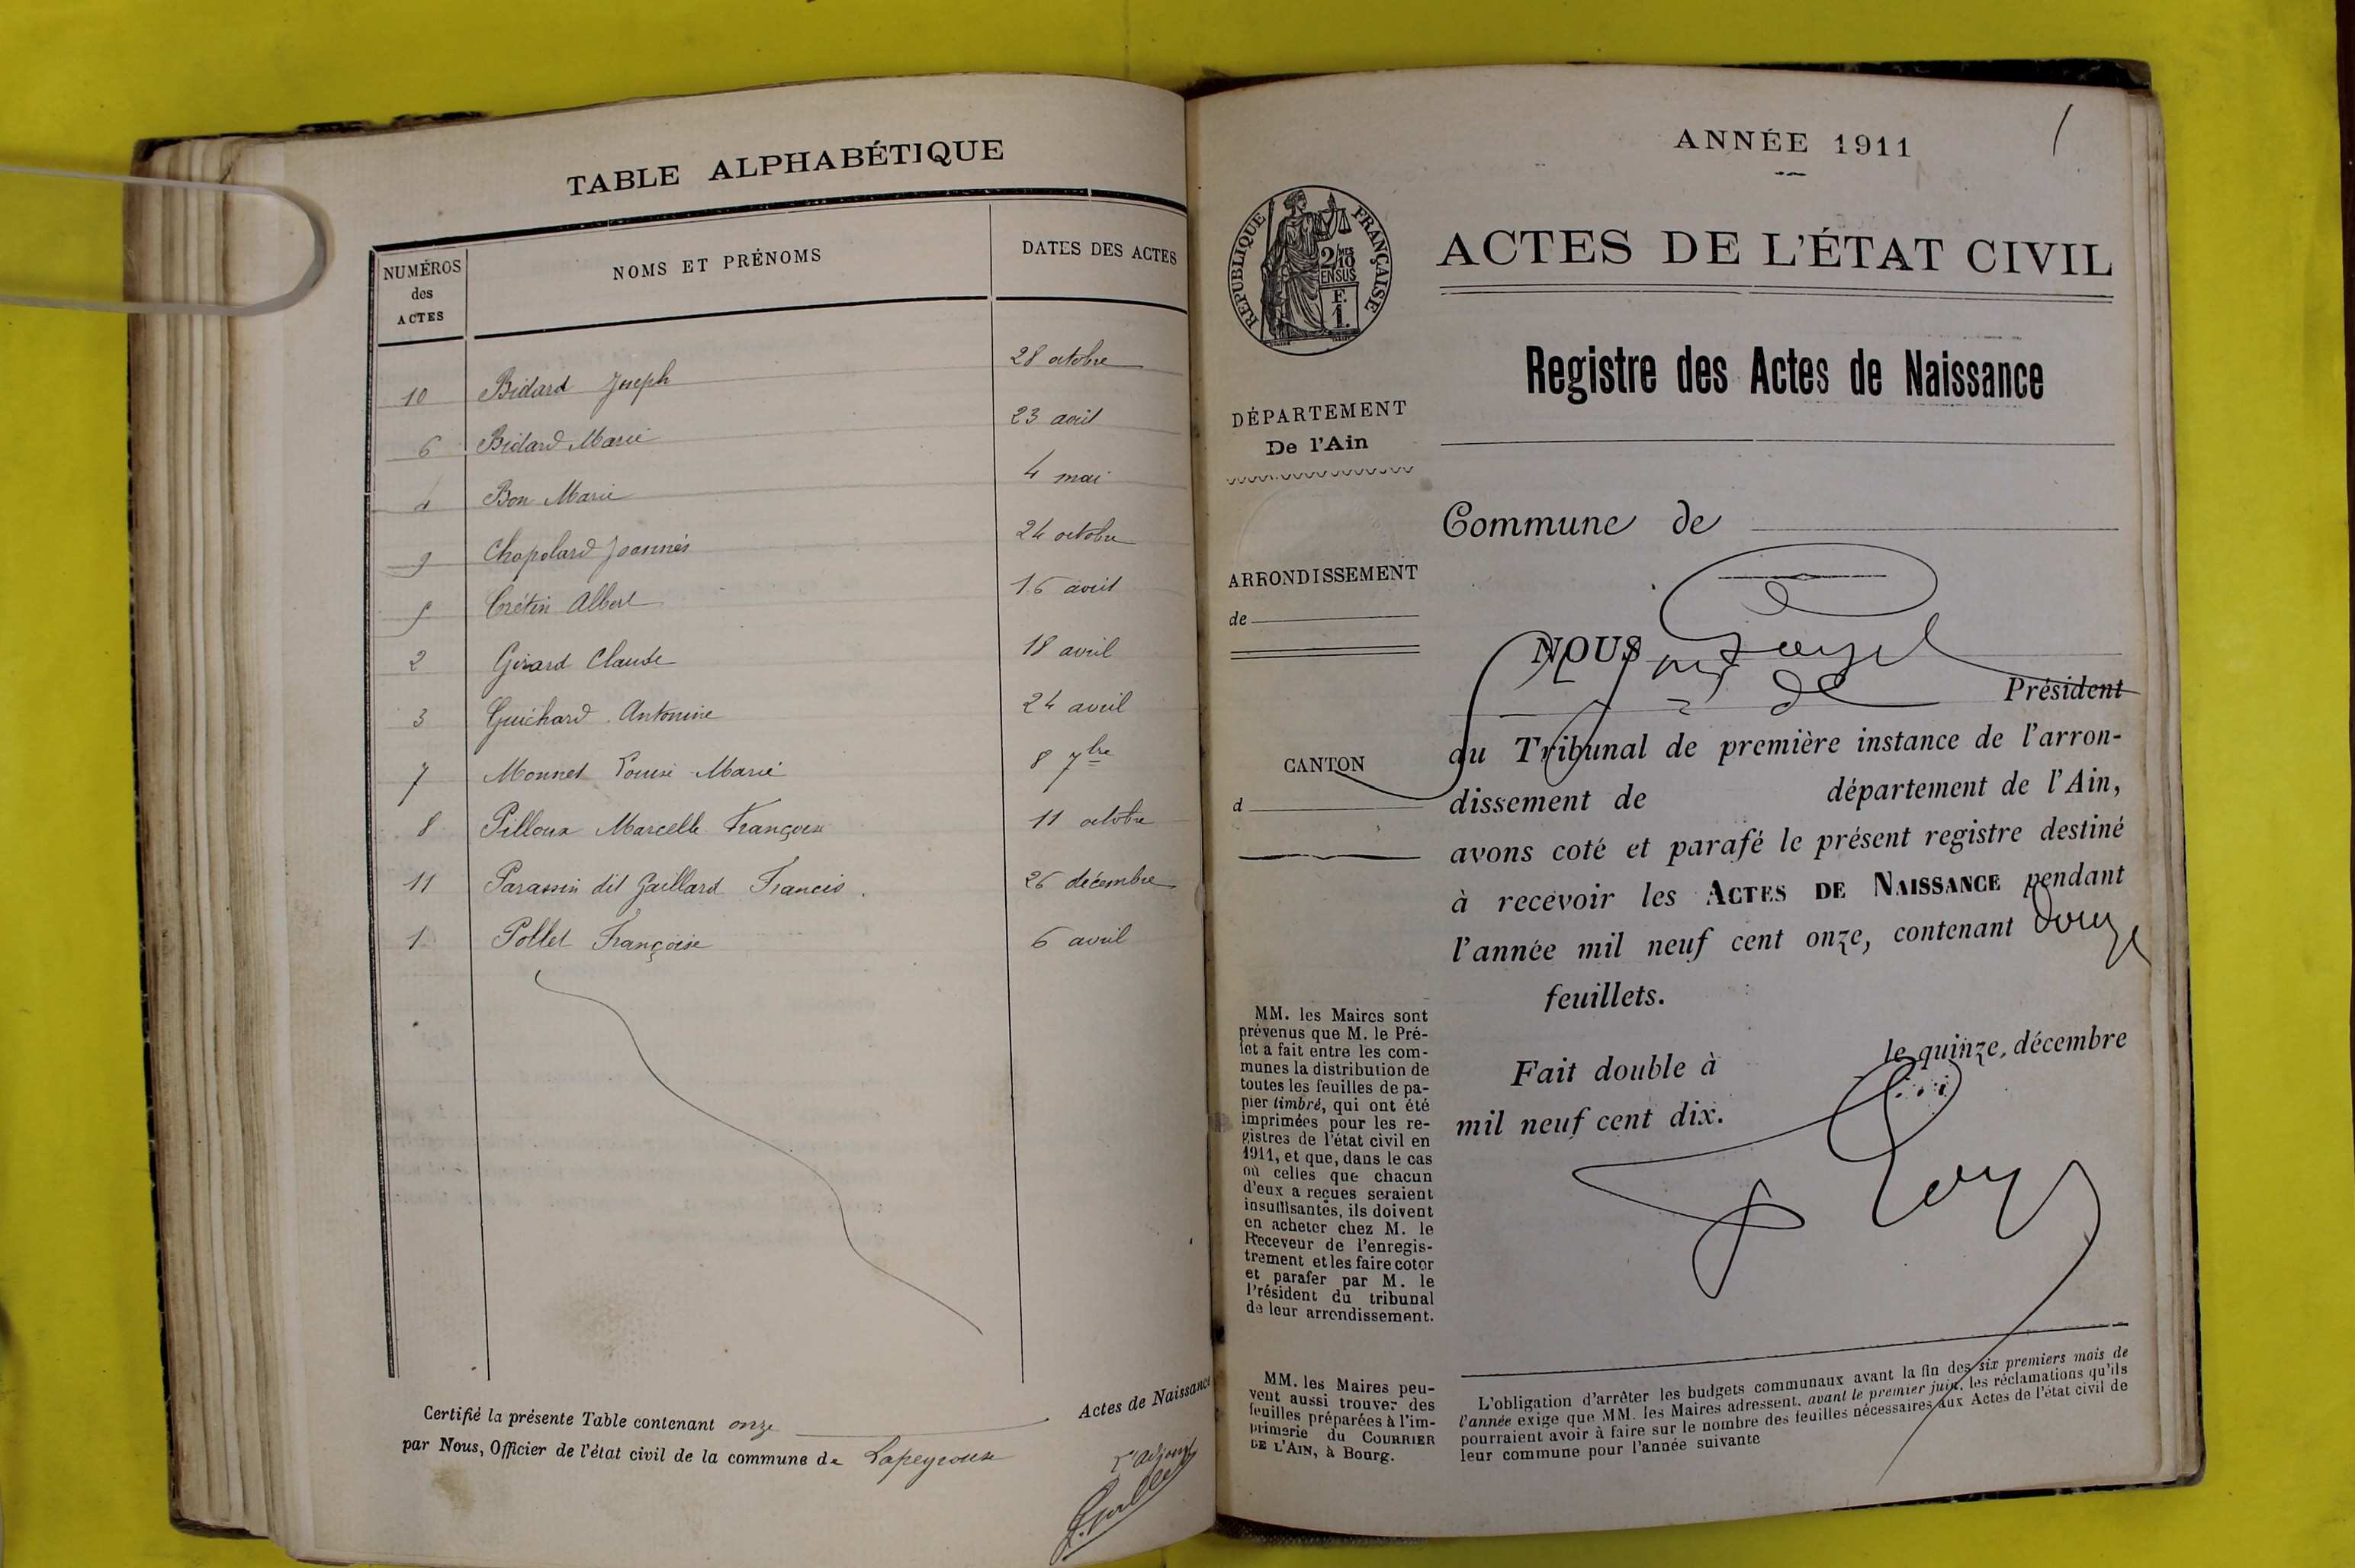 TABLE ALPHABÉTIQUE
NUMÉROS des ACTES NOMS ET PRÉNOMS DATES DES ACTES
10 Bidard Joseph 28 octobre
6 Bidard Marie 23 avril
4 Bon Marie 4 mai
9 Chapolard Joannès 24 octobre
5 Crétin Albert 16 avril
2 Girard Claude 18 avril
3 Guichard Antonine 24 avril
7 Monnet Louise Marie 8 7bre
8 Pilloux Marcelle Françoise 11 octobre
11 Parassin dit Gaillard Francis 26 décembre
1 Pollet Françoise 6 avril
Certifié la présente Table contenant onze Actes de Naissance
par Nous, Officier de l'état civil de la commune de Lapeyrouse
L'adjoint
ANNÉE 1911
1
RÉPUBLIQUE FRANÇAISE
2/10 EN SUS
F.
1.
ACTES DE L'ÉTAT CIVIL
Registre des Actes de Naissance
DÉPARTEMENT
De l'Ain
Commune de
ARRONDISSEMENT
de
NOUS
Président
CANTON
d
du Tribunal de première instance de l'arron-
dissement de département de l'Ain,
avons coté et parafé le présent registre destiné
à recevoir les ACTES DE NAISSANCE pendant
l'année mil neuf cent onze, contenant douze
feuillets.
Fait double à le quinze, décembre
mil neuf cent dix.
MM. les Maires sont
prévenus que M. le Pré-
fet a fait entre les com-
munes la distribution de
toutes les feuilles de pa-
pier timbré, qui ont été
imprimées pour les re-
gistres de l'état civil en
1911, et que, dans le cas
où celles que chacun
d'eux a reçues seraient
insuffisantes, ils doivent
en acheter chez M. le
Receveur de l'enregis-
trement et les faire coter
et parafer par M. le
Président du tribunal
de leur arrondissement.
MM. les Maires peu-
vent aussi trouver des
feuilles préparées à l'im-
primerie du COURRIER
DE L'AIN, à Bourg.
L'obligation d'arrêter les budgets communaux avant la fin des six premiers mois de
l'année exige que MM. les Maires adressent, avant le premier juin, les réclamations qu'ils
pourraient avoir à faire sur le nombre des feuilles nécessaires aux Actes de l'état civil de
leur commune pour l'année suivante